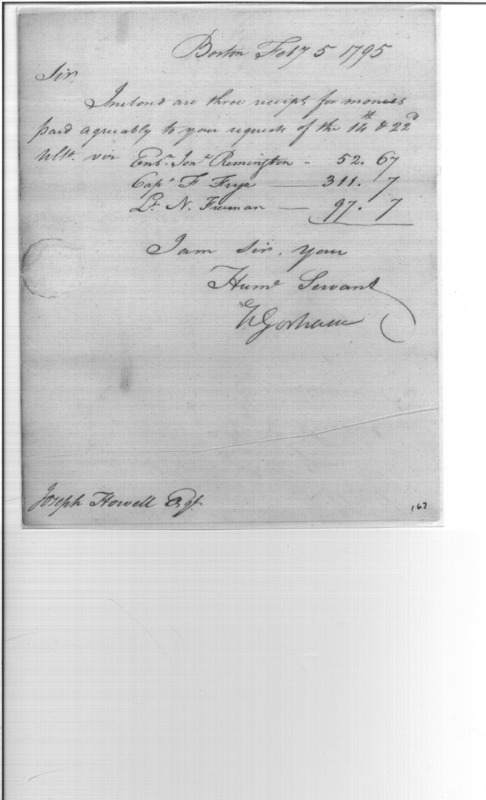 Boston Feby 5 1795
Sir
Inclosd are three receipts for monies
paid agreably to your requests of the 14th & 22d
Ults. viz Ensn Jona Remington - 52. 67
Capt F Frye — 311. 7
Lt N. Freeman — 97. 7
I am Sir. your
Humb Servant
N Gorham
Joseph Howell Esqr.
167